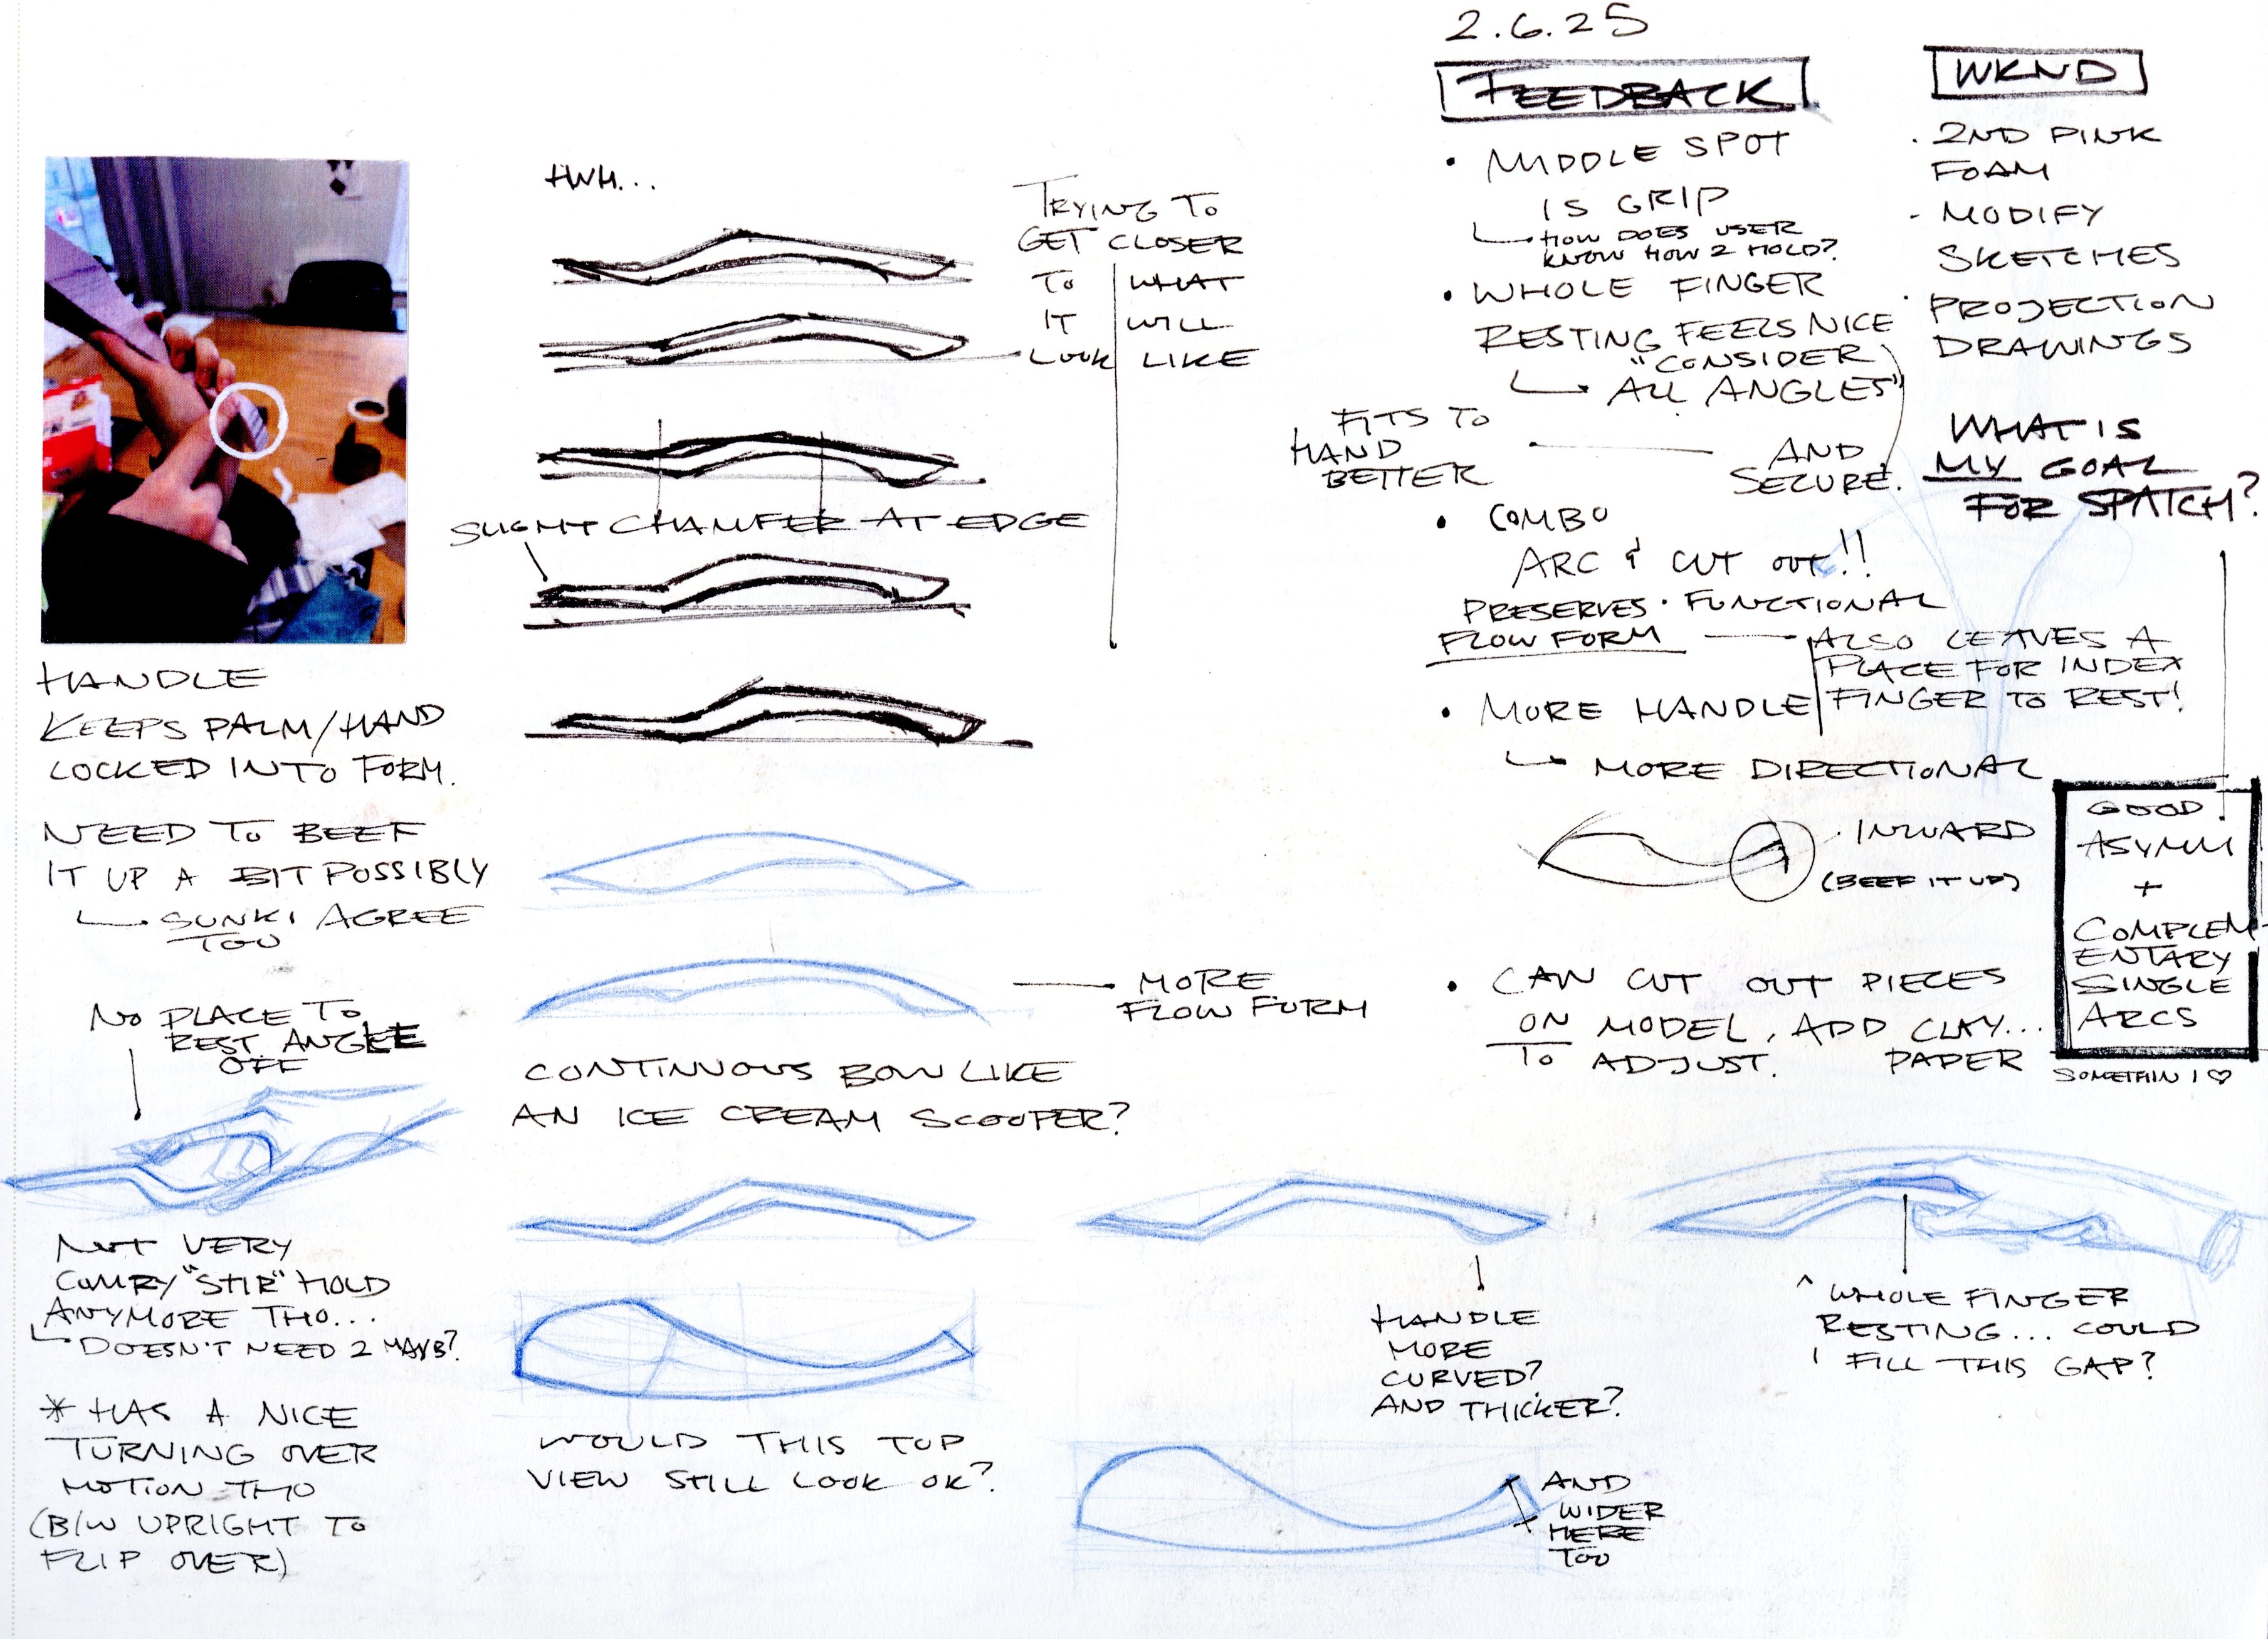 2.6.25
FEEDBACK
• MIDDLE SPOT
IS GRIP
HOW DOES USER
KNOW HOW 2 HOLD?
• WHOLE FINGER
RESTING FEELS NICE
"CONSIDER
ALL ANGLES"
FITS TO
HAND
BETTER
AND
SECURE.
• COMBO
ARC & CUT OUT!!
PRESERVES • FUNCTIONAL
FLOW FORM
ALSO LEAVES A
PLACE FOR INDEX
FINGER TO REST!
• MORE HANDLE
MORE DIRECTIONAL
INWARD
(BEEF IT UP)
• CAN CUT OUT PIECES
ON MODEL, ADD CLAY...
TO ADJUST. PAPER
WKND
• 2ND PINK
FOAM
- MODIFY
SKETCHES
• PROJECTION
DRAWINGS
WHAT IS
MY GOAL
FOR SPATCH?
GOOD
ASYMM
+
COMPLEM-
ENTARY
SINGLE
ARCS
SOMETHIN I ♡
HWH...
TRYING TO
GET CLOSER
TO WHAT
IT WILL
LOOK LIKE
SLIGHT CHAMFER AT EDGE
HANDLE
KEEPS PALM/HAND
LOCKED INTO FORM.
NEED TO BEEF
IT UP A BIT POSSIBLY
SUNKI AGREE
TOO
NO PLACE TO
REST ANGLE
OFF
NOT VERY
COMFY "STIR" HOLD
ANYMORE THO...
DOESN'T NEED 2 MAYB?
* HAS A NICE
TURNING OVER
MOTION THO
(B/W UPRIGHT TO
FLIP OVER)
MORE
FLOW FORM
CONTINUOUS BOW LIKE
AN ICE CREAM SCOOPER?
WOULD THIS TOP
VIEW STILL LOOK OK?
HANDLE
MORE
CURVED?
AND THICKER?
AND
WIDER
HERE
TOO
^ WHOLE FINGER
RESTING... COULD
I FILL THIS GAP?